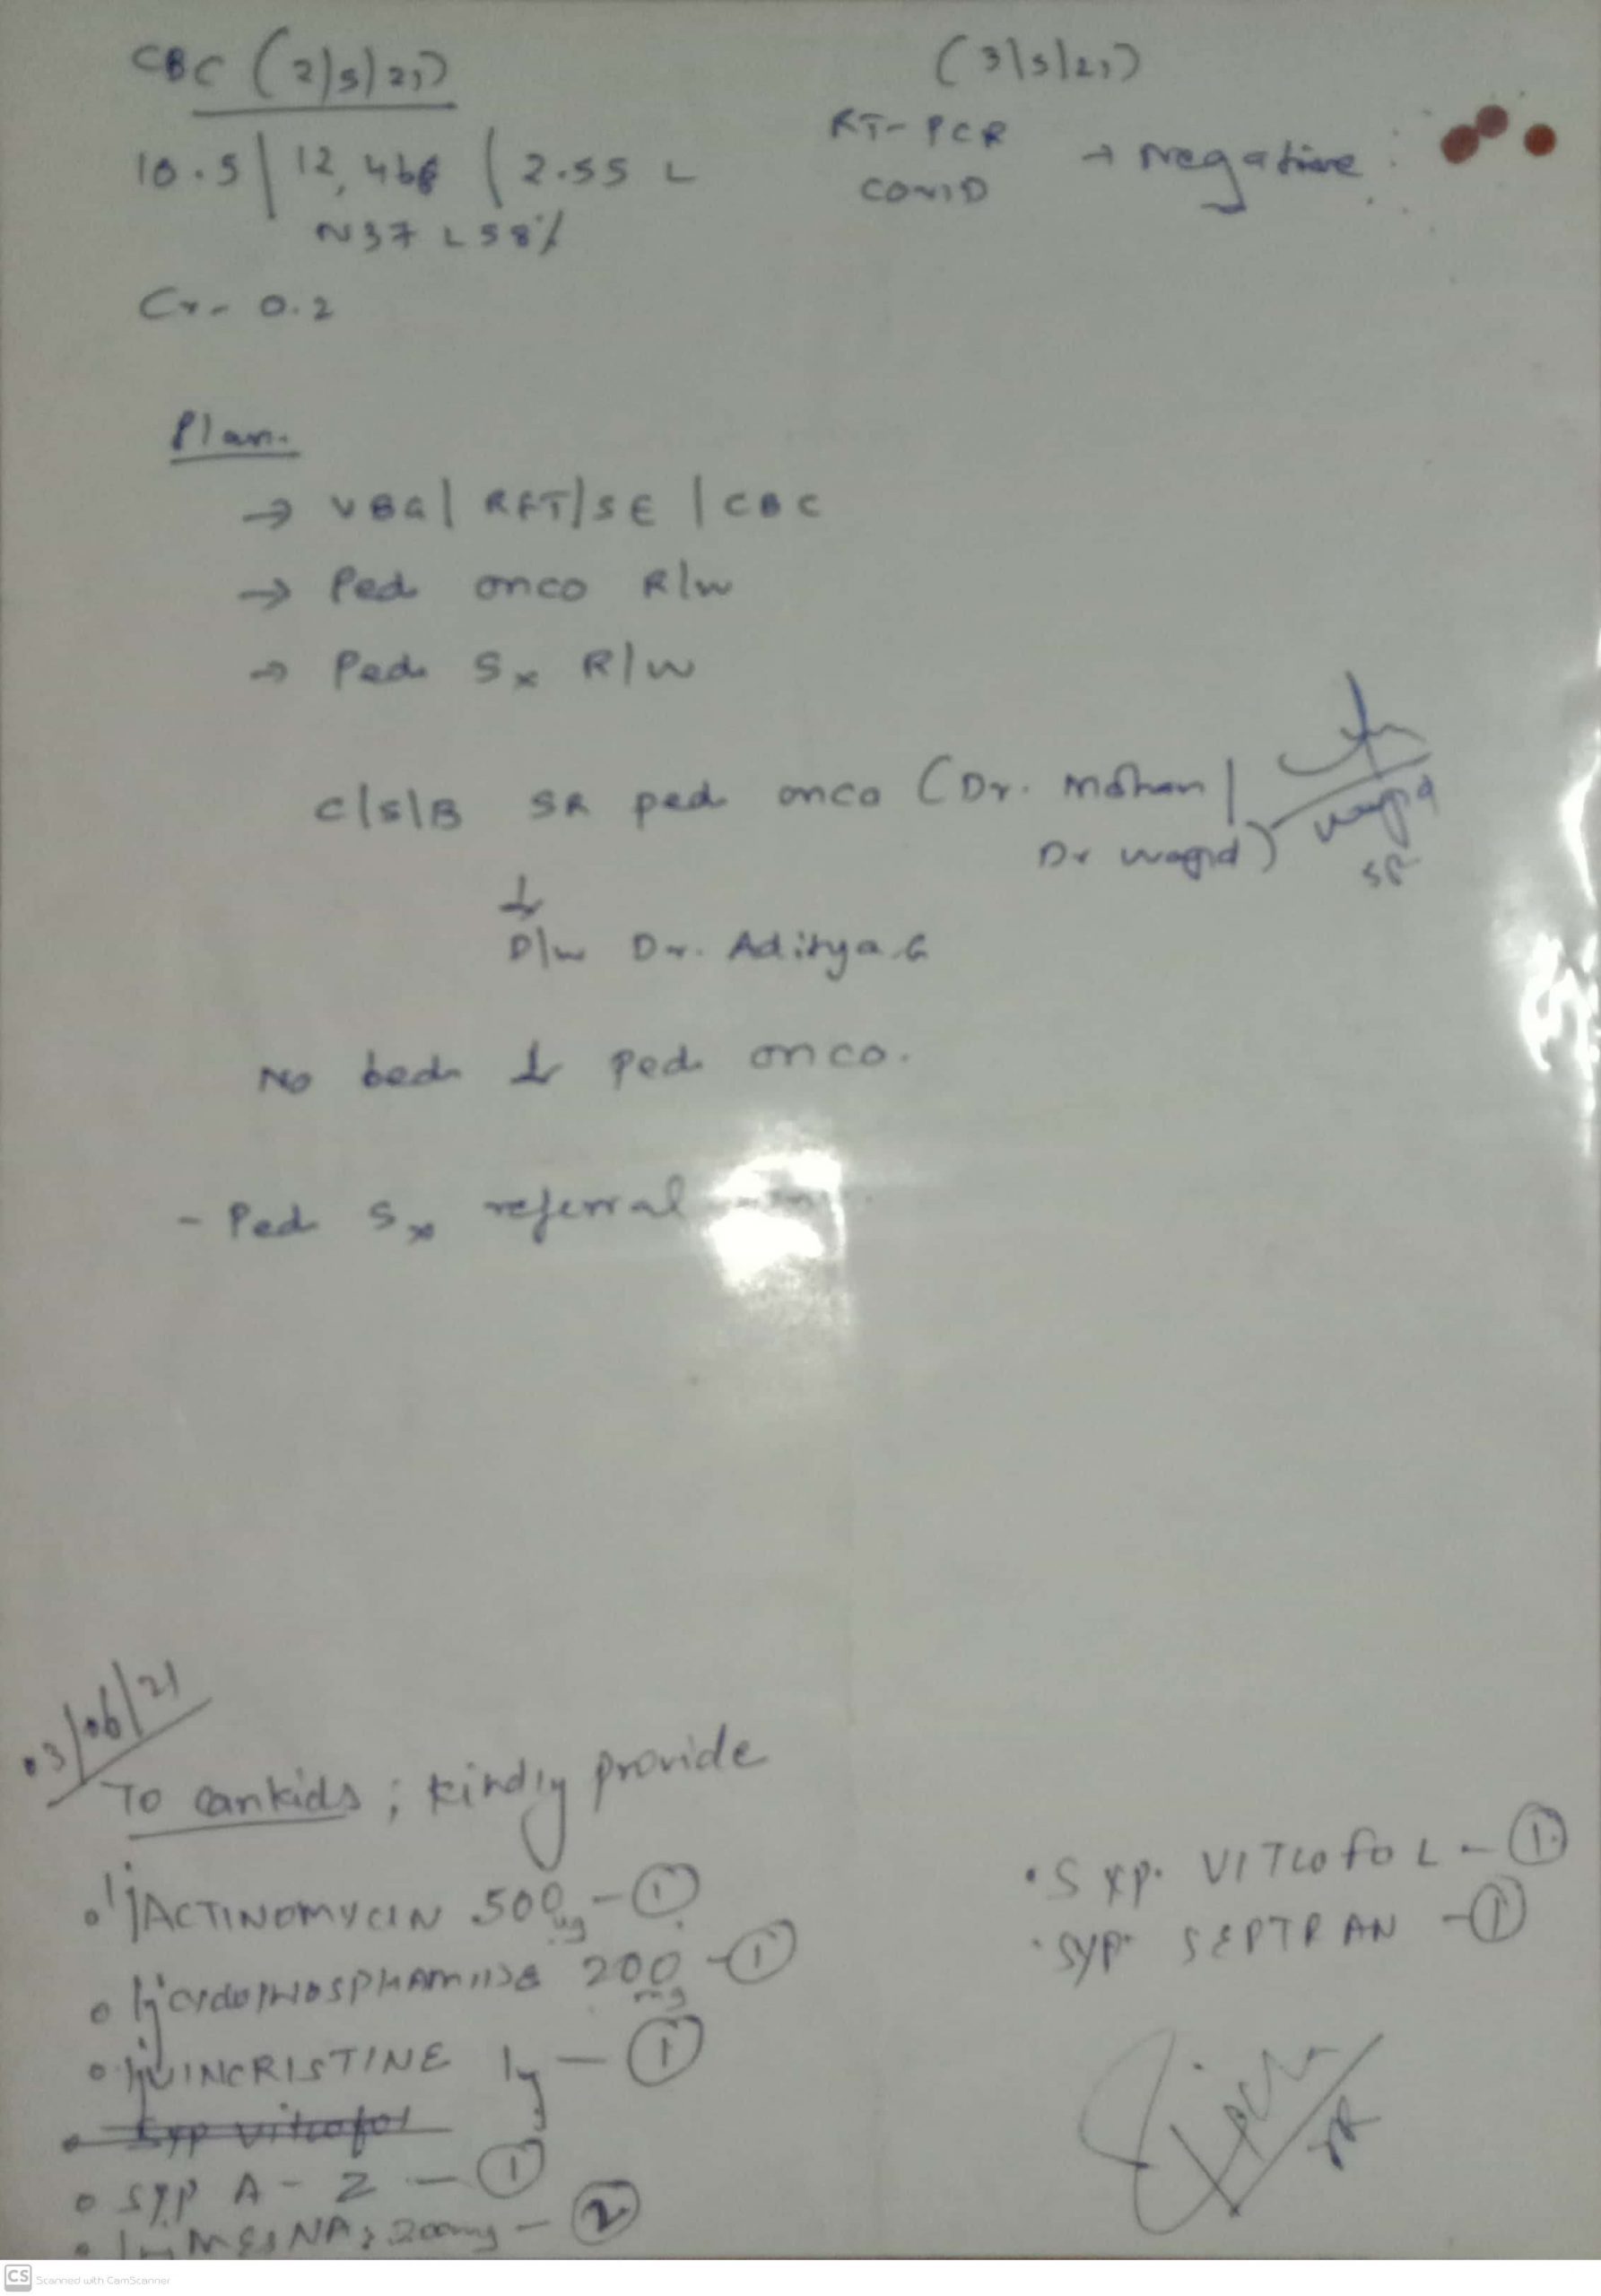 CBC (2/5/21)
(3/5/21)
10.5 | 12,460 | 2.55 L
RT-PCR COVID → Negative
N37 L58%
Cr- 0.2
Plan.
→ VBG | RFT/SE | CBC
→ Ped onco R/w
→ Ped Sx R/w
C/S/B SR ped onco (Dr. Mohan |
Dr Waqid)
SR
D/w Dr. Aditya G
No bed ped onco.
- Ped Sx referral
03/06/21
To cankids; kindly provide
• Inj ACTINOMYCIN 500 ug - ①
• Inj CYCLOPHOSPHAMIDE 200 mg - ①
• Inj VINCRISTINE 1mg - ①
• Syp Vitcofol
• SYP A-Z - ①
• Inj MESNA 200mg - ②
• Syp. VITCOFOL - ①
• Syp. SEPTRAN - ①
SR
CS Scanned with CamScanner